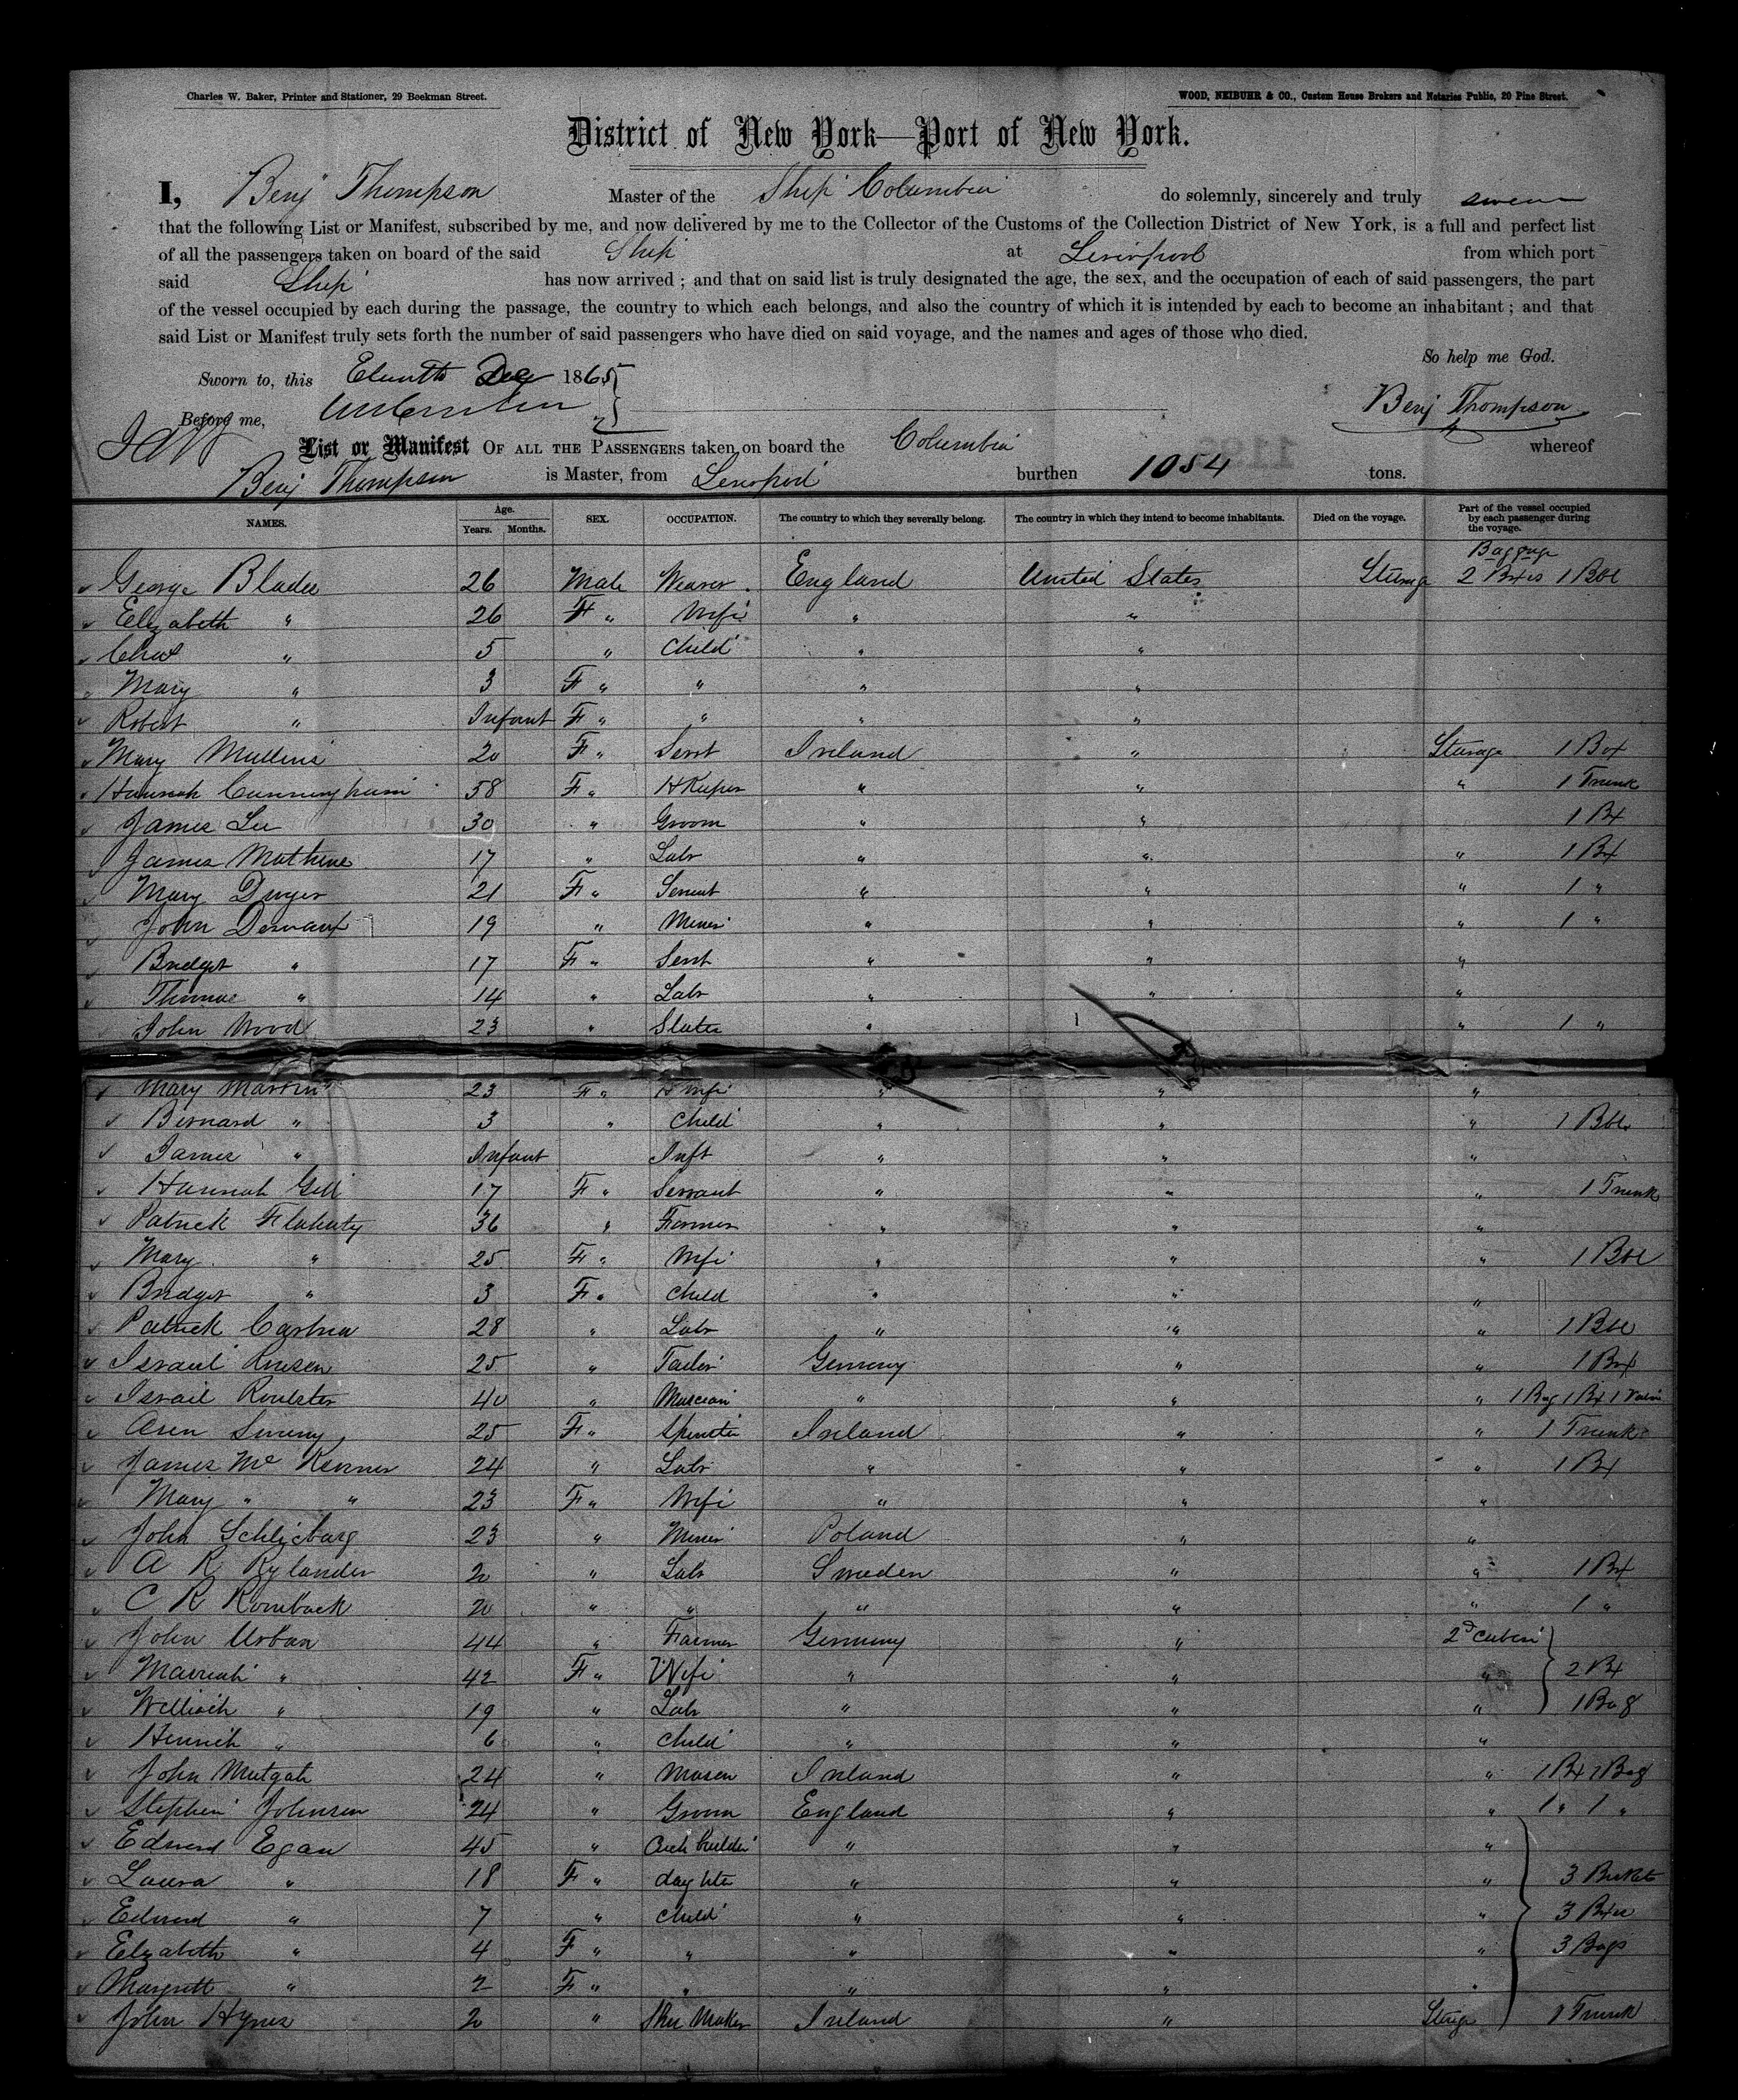 Charles W. Baker, Printer and Stationer, 29 Beekman Street.
WOOD, NEIBUHR & CO., Custom House Brokers and Notaries Public, 20 Pine Street.
District of New York—Port of New York.
I, Benj Thompson Master of the Ship Columbia do solemnly, sincerely and truly swear
that the following List or Manifest, subscribed by me, and now delivered by me to the Collector of the Customs of the Collection District of New York, is a full and perfect list
of all the passengers taken on board of the said Ship at Liverpool from which port
said Ship has now arrived ; and that on said list is truly designated the age, the sex, and the occupation of each of said passengers, the part
of the vessel occupied by each during the passage, the country to which each belongs, and also the country of which it is intended by each to become an inhabitant ; and that
said List or Manifest truly sets forth the number of said passengers who have died on said voyage, and the names and ages of those who died.
So help me God.
Sworn to, this Dec 1865
Before me, Benj Thompson
List or Manifest OF ALL THE PASSENGERS taken on board the Columbia whereof
Benj Thompson is Master, from Liverpool burthen 1054 tons.
NAMES. Age. Years. Months. SEX. OCCUPATION. The country to which they severally belong. The country in which they intend to become inhabitants. Died on the voyage. Part of the vessel occupied by each passenger during the voyage.
Baggage
George 26 Male Weaver England United States Sterage 2 Bxes 1 Bbl
Elizabeth " 26 F " Wife " "
Chas " 5 " Child " "
Mary " 3 F " " " "
Robert " Infant F " " " "
Mary Mullins 20 F " Servt Ireland " Sterage 1 Box
Hannah Cunningham 58 F " HKeeper " " " 1 Trunk
James Lee 30 " Groom " " 1 Bx
James 17 " Labr " " " 1 Bx
Mary Dwyer 21 F " Servant " " " 1 "
John 19 " Miner " " " 1 "
Bridget " 17 F " Servt " " "
Thomas " 14 " Labr " " "
John Wood 23 " Slater " " " 1 "
Mary Martin 23 F " Wife " " "
Bernard " 3 " Child " " " 1 Bbl
James " Infant Inft " " "
Hannah Gill 17 F " Servant " " " 1 Trunk
Patrick Flaherty 36 " Farmer " " "
Mary " 25 F " Wife " " " 1 Bbl
Bridget " 3 F " Child " " "
Patrick 28 " Labr " " " 1 Bbl
Israel 25 " Tailor Germany " " 1 Bx
Israel 40 " Muscian " " " 1 Bag 1 Bx
Ann 25 F " Spinster Ireland " " 1 Trunk
James Mc 24 " Labr " " " 1 Bx
Mary " " 23 F " Wife " " "
John 23 " Miner Poland " "
A R Rylander 20 " Labr Sweden " " 1 Bx
C R Romback 20 " " " " " 1 "
John Urban 44 " Farmer Germany " 2d Cabin
" 42 F " Wife " " " 2 Bx
" 19 " Labr " " " 1 Bag
" 6 " Child " " "
John 24 " Mason Ireland " " 1 Bx 1 Bag
Stephen Johnson 24 " Groom England " " 1 " 1 "
Edward Egan 45 " " " "
Laura " 18 F " daughter " " " 3 Baskets
Edward " 7 " Child " " " 3 Bxes
Elizabeth " 4 F " " " " " 3 Bags
Margrett " 2 F " " " " "
John Hynes 20 " Shoe Maker Ireland " Sterage 1 Trunk